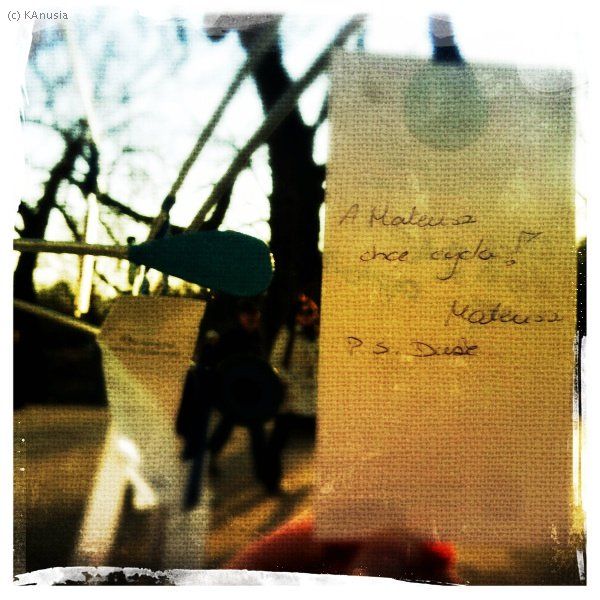 (c) KAnusia
A Mateusz
chce cycka!
Mateusz
P.S. Duże